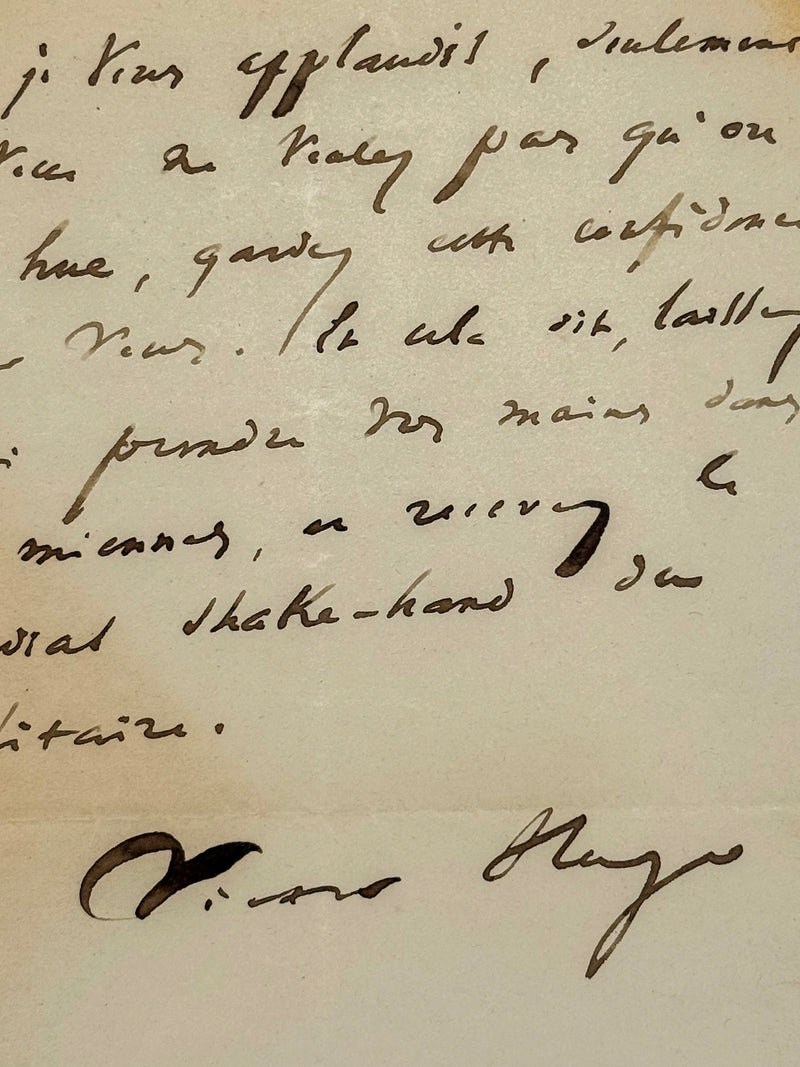 je vous applaudis, seulement
vous ne voulez pas qu'on
hue, gardez cette confidence
vous. Et cela dit, laissez
prendre vos mains dans
miennes, et recevez le
dial shake-hand du
litaire.
Victor Hugo